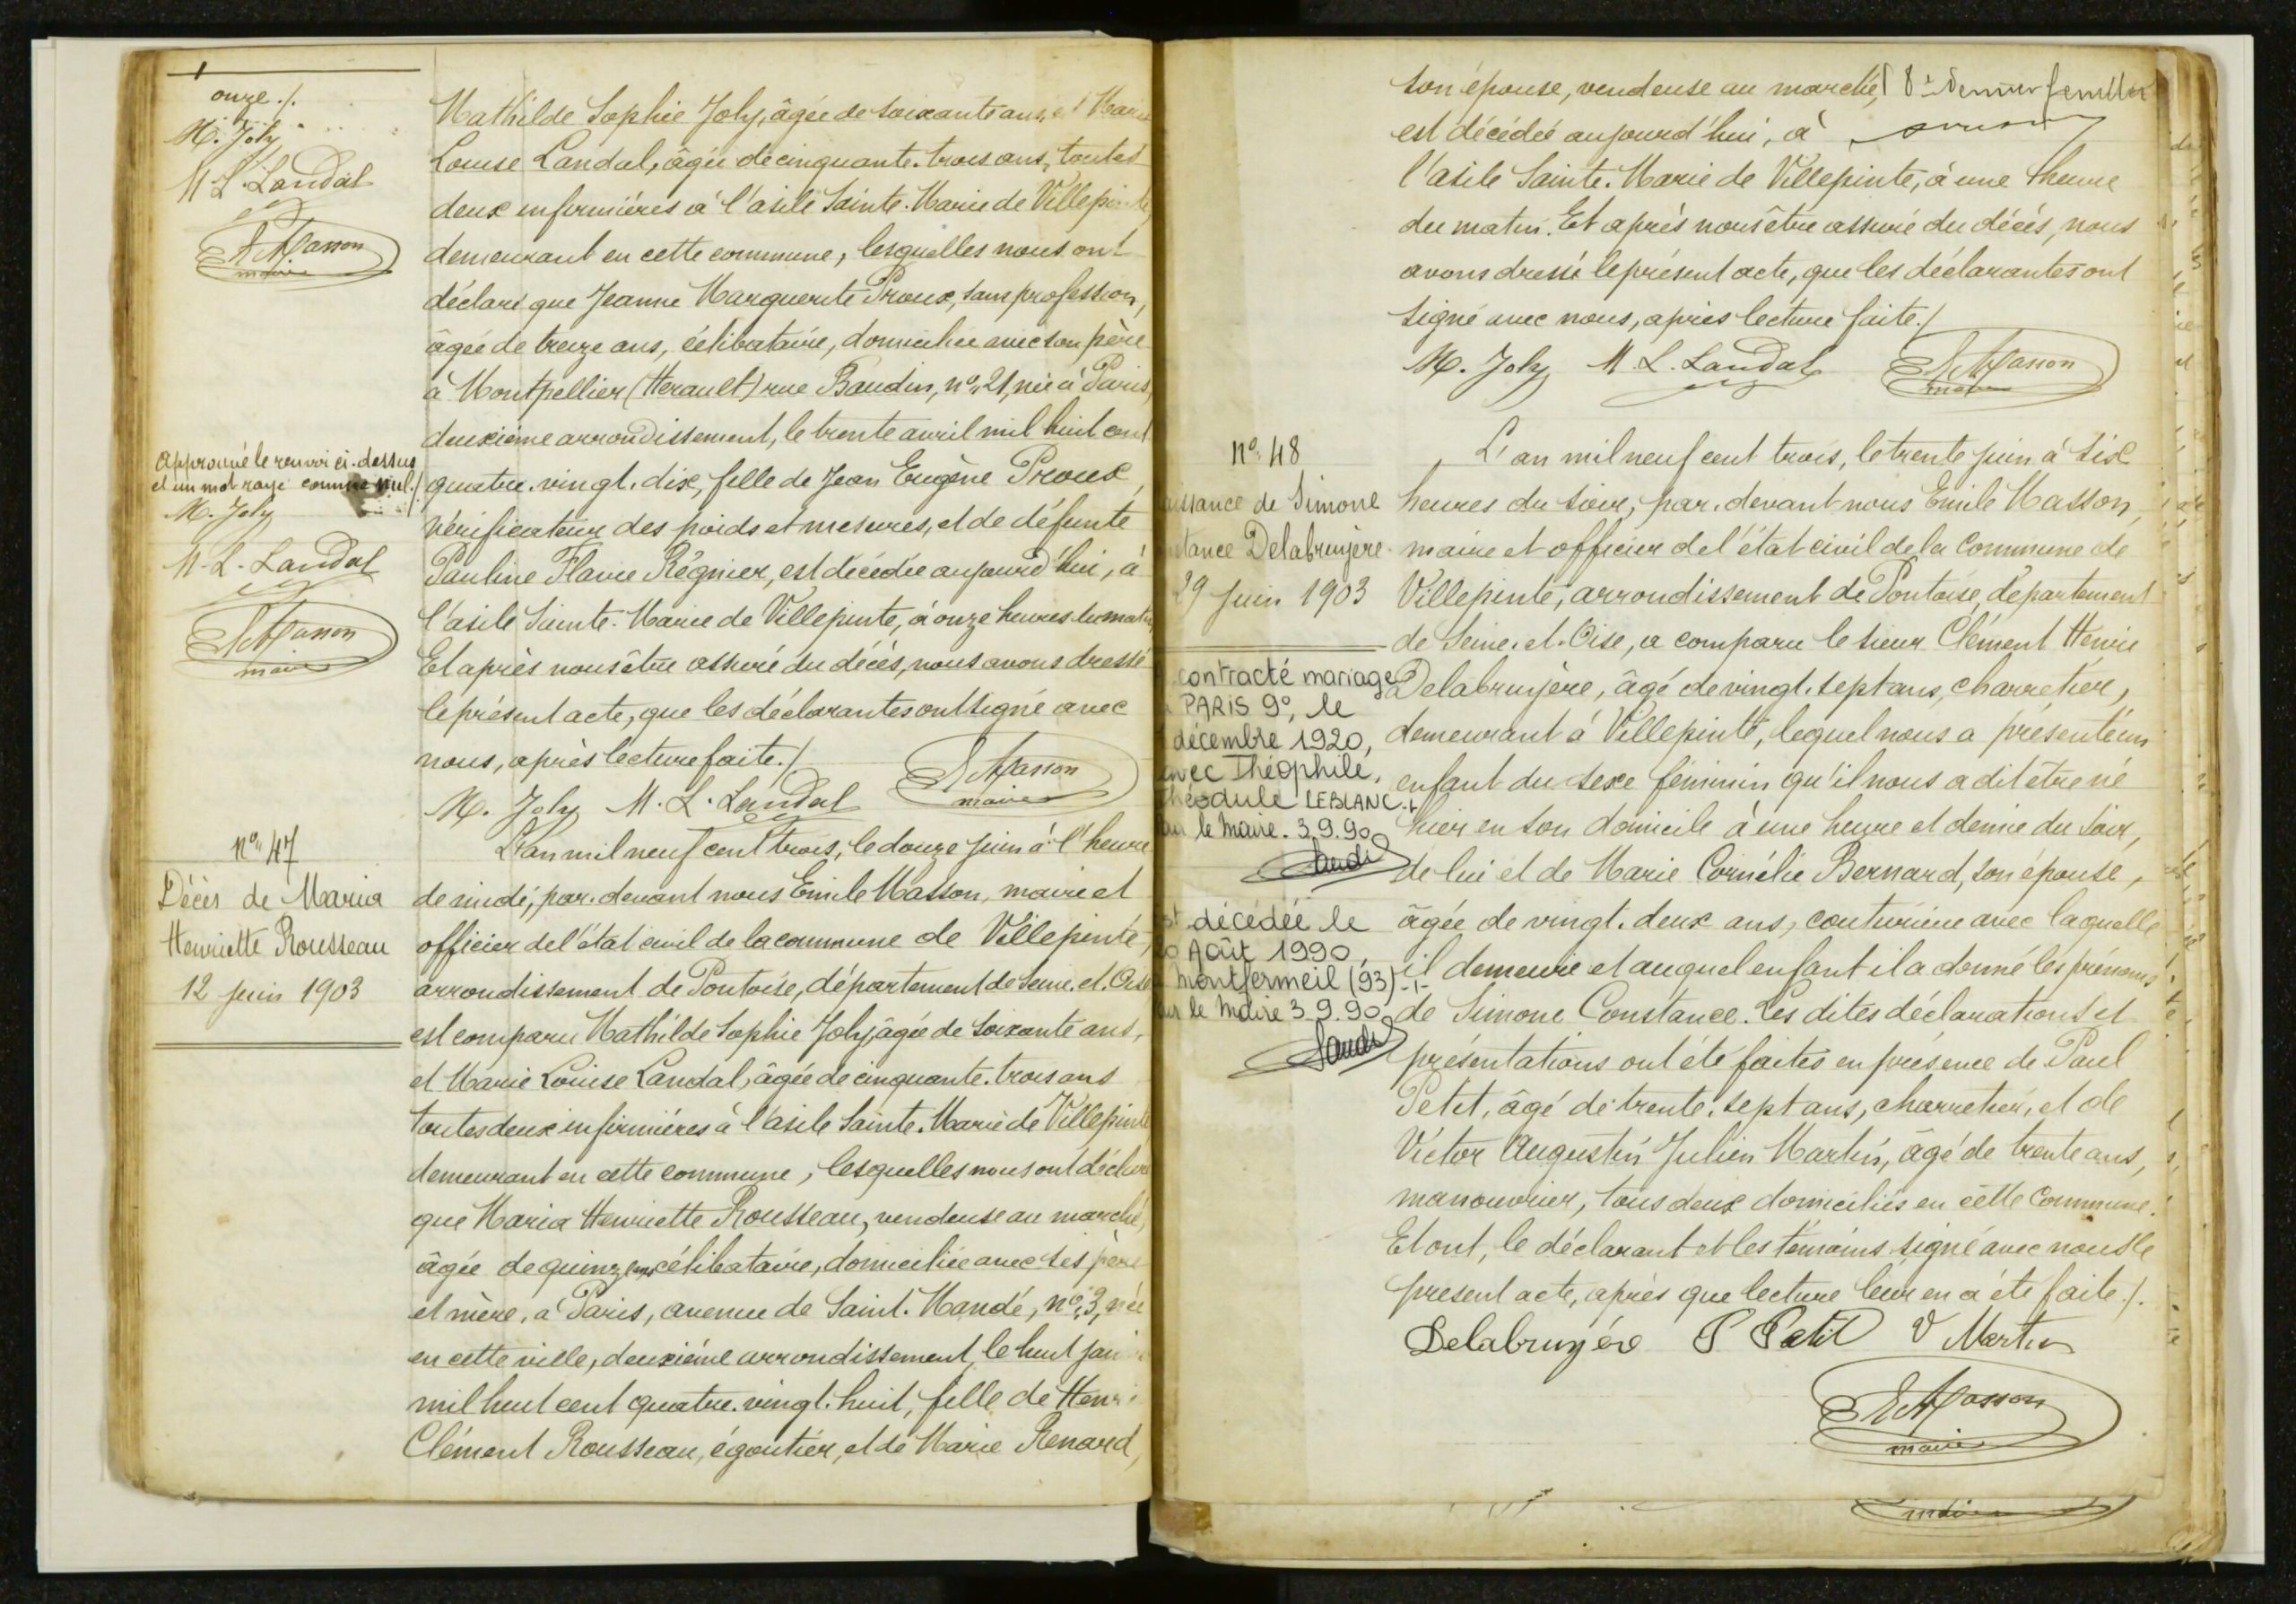 onze ./.
M. Joly
M L. Landal
E Masson
maire
Approuvé le renvoi ci-dessus
et un mot rayé comme nul./
M. Joly
M. L. Landal
E Masson
maire
Mathilde Sophie Joly, âgée de soixante ans, et Marie
Louise Landal, âgée de cinquante-trois ans, toutes
deux infirmières à l'asile Sainte-Marie de Villepinte,
demeurant en cette commune, lesquelles nous ont
déclaré que Jeanne Marguerite Proux, sans profession,
âgée de treize ans, célibataire, domiciliée avec son père
à Montpellier (Herault) rue Baudin, n° 21, née à Paris,
deuxième arrondissement, le trente avril mil huit cent
quatre-vingt-dix, fille de Jean Eugène Proux,
vérificateur des poids et mesures, et de défunte
Pauline Flavie Régnier, est décédée aujourd'hui, à
l'asile Sainte-Marie de Villepinte, à onze heures du matin.
Et après nous être assuré du décès, nous avons dressé
le présent acte, que les déclarantes ont signé avec
nous, après lecture faite./
M. Joly M. L. Landal E Masson
maire
N° 47
Décès de Maria
Henriette Rousseau
12 juin 1903
L'an mil neuf cent trois, le douze juin à l'heure
de midi, par-devant nous Emile Masson, maire et
officier de l'état civil de la commune de Villepinte,
arrondissement de Pontoise, département de Seine-et-Oise
est comparu Mathilde Sophie Joly, âgée de soixante ans,
et Marie Louise Landal, âgée de cinquante-trois ans
toutes deux infirmières à l'asile Sainte-Marie de Villepinte
demeurant en cette commune, lesquelles nous ont déclaré
que Maria Henriette Rousseau, vendeuse au marché,
âgée de quinze ans célibataire, domiciliée avec ses père
et mère, à Paris, avenue de Saint-Mandé, n° 3, née
en cette ville, deuxième arrondissement, le huit
mil huit cent quatre-vingt-huit, fille de Henri
Clément Rousseau, égoutier, et de Marie Renard,
son épouse, vendeuse au marché, 8e dernier feuillet
est décédée aujourd'hui, à
l'asile Sainte-Marie de Villepinte, à une heure
du matin. Et après nous être assuré du décès, nous
avons dressé le présent acte, que les déclarantes ont
signé avec nous, après lecture faite./
M. Joly M. L. Landal E Masson
maire
N° 48
issance de Simone
stance Delabruyère
29 juin 1903
contracté mariage
PARIS 9°, le
décembre 1920,
avec Théophile,
Théodule LEBLANC.
le Maire. 3.9.90
décédée le
Août 1990,
Montfermeil (93)
le Maire 3.9.90
L'an mil neuf cent trois, le trente juin à six
heures du soir, par-devant nous Emile Masson,
maire et officier de l'état civil de la commune de
Villepinte, arrondissement de Pontoise, département
de Seine-et-Oise, a comparu le sieur Clément Henri
Delabruyère, âgé de vingt-sept ans, charretier,
demeurant à Villepinte, lequel nous a présenté un
enfant du sexe féminin qu'il nous a dit être né
hier en son domicile à une heure et demie du soir,
de lui et de Marie Cornélie Bernard, son épouse,
âgée de vingt-deux ans, couturière avec laquelle
il demeure et auquel enfant il a donné les prénoms
de Simone Constance. Les dites déclarations et
présentations ont été faites en présence de Paul
Petit, âgé de trente-sept ans, charretier, et de
Victor Augustin Julien Martin, âgé de trente ans,
manouvrier, tous deux domiciliés en cette commune.
Et ont, le déclarant et les témoins, signé avec nous le
présent acte, après que lecture leur en a été faite./.
Delabruyère P Petit V Martin
E Masson
maire
maire